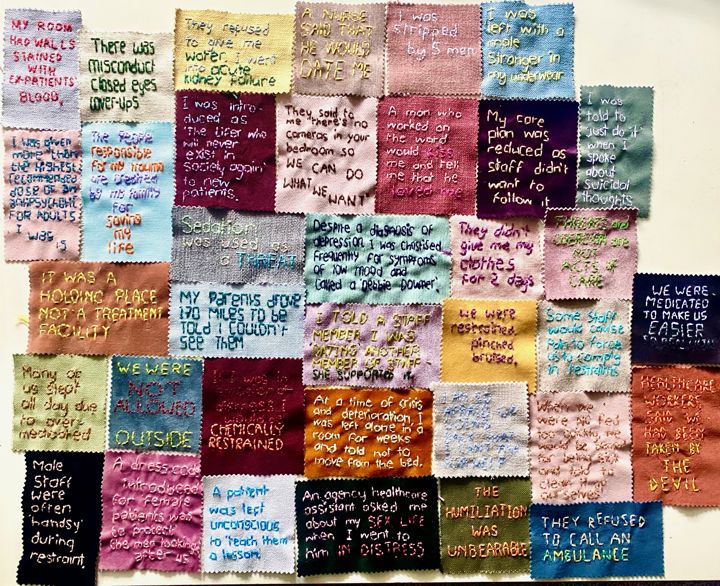 MY ROOM
HAD WALLS
STAINED
WITH
EX-PATIENTS'
BLOOD.
There was
misconduct
closed eyes
cover-ups
They refused
to give me
water. I went
into acute
kidney failure
A NURSE
SAID THAT
HE WOULD
DATE ME
I was
stripped
by 5 men
I was
left with a
male
stranger in
my underwear
I was given
more than
the highest
recommended
dose of an
antipsychotic
FOR ADULTS
I WAS 15
The people
responsible
for my trauma
are credited
by my family
for
saving
my
life
I was intro-
duced as
'The Lifer who
will never
exist in
society again'
to new
patients.
They said to
me 'there's no
cameras in your
bedroom so
WE CAN DO
WHAT WE WANT'
A man who
worked on
the ward
would
and tell
me that he
loved me
My care
plan was
reduced as
staff didn't
want to
follow it
I was
told to
'just do it'
when I
spoke
about
suicidal
thoughts
Sedation
was used as
a THREAT
Despite a diagnosis of
depression I was chastised
frequently for symptoms
of low mood and
called a 'Debbie Downer'.
They didn't
give me my
clothes
for 2 days
THREATS and
COERCION are
NOT
ACTS of
CARE
IT WAS A
HOLDING PLACE
NOT A TREATMENT
FACILITY
MY Parents drove
170 MILES to be
told I couldn't
see them
I TOLD A STAFF
MEMBER I WAS
DATING ANOTHER
MEMBER OF STAFF.
SHE SUPPORTED IT
We were
restrained,
pinched
bruised.
Some staff
would cause
Pain to force
us to comply
in restraints
WE WERE
MEDICATED
TO MAKE US
EASIER
Many of
us slept
all day due
to over-
medicated
WE WERE
NOT
ALLOWED
OUTSIDE
CHEMICALLY
RESTRAINED
At a time of crisis
and deterioration, I
was left alone in a
room for weeks
and told not to
move from the bed.
HEALTHCARE
WORKERS
SAID WE
HAD BEEN
TAKEN BY
THE
DEVIL
Male
Staff
were
often
'handsy'
during
restraint
A dress-code
introduced
for female
patients was
to protect
the men looking
after us
A patient
was left
unconscious
to 'teach them
a lesson'
An agency healthcare
assistant asked me
about my SEX LIFE
when I went to
him IN DISTRESS
THE
HUMILIATION
WAS
UNBEARABLE
THEY REFUSED
TO CALL AN
AMBULANCE